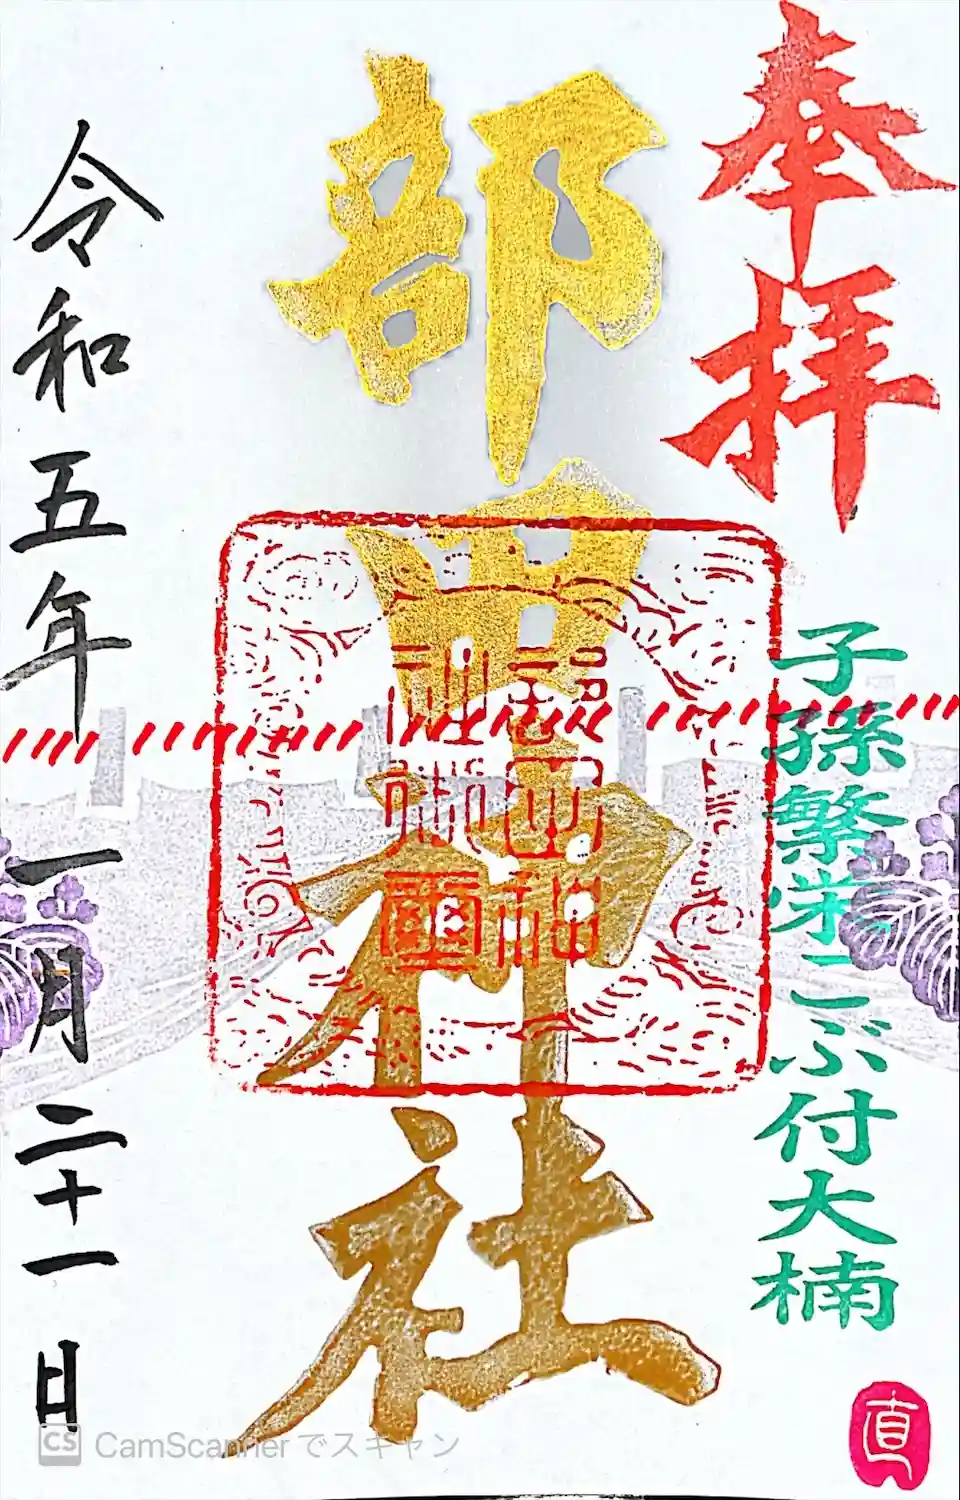 奉拝
子孫繁栄こぶ付大楠
部田神社
令和五年一月二十一日
直
CS CamScanner でスキャン